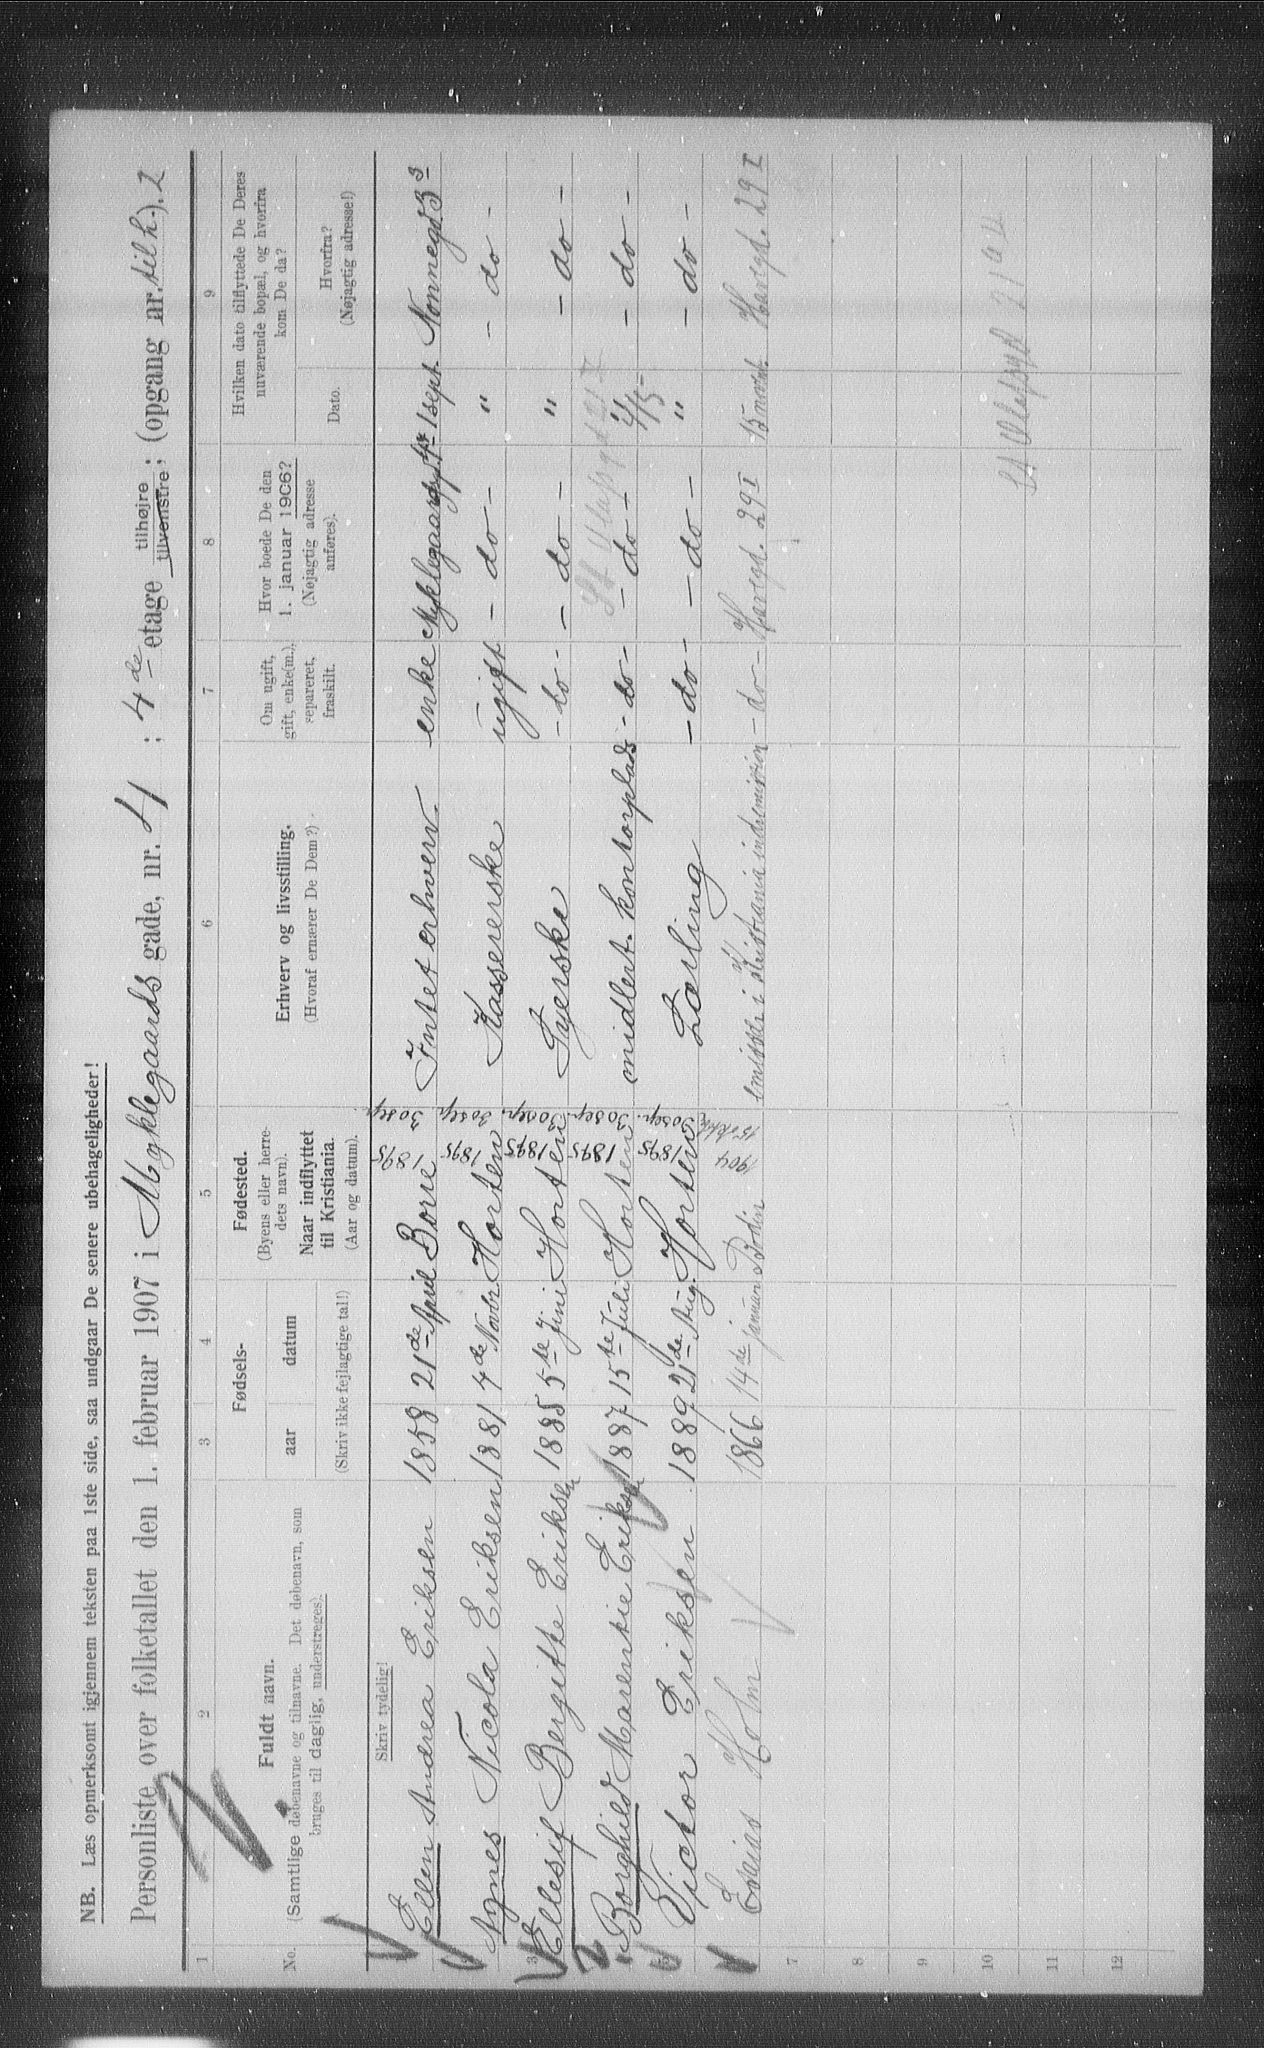 NB. Læs opmerksomt igjennem teksten paa 1ste side, saa undgaar De senere ubehageligheder!
Personliste over folketallet den 1. februar 1907 i Myklegaards gade, nr. 4 : 4de etage tilhøjre tilvenstre; (opgang nr. til h.). 2
1 2 3 4 5 6 7 8 9
No.
Fuldt navn.
(Samtlige døbenavne og tilnavne. Det døbenavn, som
bruges til daglig, understreges).
Fødsels-
aar datum
(Skriv ikke fejlagtige tal!)
Fødested.
(Byens eller herre-
dets navn).
Naar indflyttet
til Kristiania.
(Aar og datum).
Erhverv og livsstilling.
(Hvoraf ernærer De Dem?)
Om ugift,
gift, enke(m.),
separeret,
fraskilt.
Hvor boede De den
1. januar 1906?
(Nøjagtig adresse
anføres).
Hvilken dato tilflyttede De Deres
nuværende bopæl, og hvorfra
kom De da?
Dato.
Hvorfra?
(Nøjagtig adresse!)
Skriv tydelig!
Ellen Andrea Eriksen 1858 21de April Borre 1895 30 sep. Intet erhverv. enke Myklegaardsgt 1 sept. Nonnegd 3
Agnes Nicola Eriksen 1881 7de Novbr Horten 1895 30 sep. Kassererske ugift - do - " - do -
3 Ellesif Bergitte Eriksen 1885 5te Juni Horten 1895 30 sep. Syerske - do - - do - " - do -
St Olafsgd 21
Borghild Marentie Eriksen 1887 15te Juli Horten 1895 30 sep. midlert. kontorplads - do - - do - " - do -
4/5
5 Victor Eriksen 1889 21de Aug. Horten 1895 30 sep. Lærling - do - - do - " - do -
Esaias Holm 1866 14de januar Bodin 1904 15 oktbr. i Kristiania indremission - do - Havegd. 29 I 15 novbr. Havegd. 29 I
7
10
St Olafsgd 21
11
12